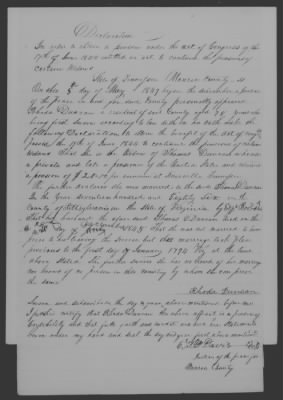 Declaration
In order to obtain a pension under the act of Congress of the
17th of June 1844 entitled an act to continue the pensions of
certain widows
State of Tennessee Warren County
On this day of May 1847 before the subscriber a Justice
of the peace in and for said County personally appeared
Rhoda Duncan a resident of said County aged years who
being first sworn according to law doth on her oath make the
following Declaration to obtain the benefit of the act of
passed the 17th of June 1844 to continue the pensions of certain
widows That she is the widow of Thomas Duncan who was
a private and late a pensioner of the United States and received
a pension of $ per annum at Tennessee
She further declares she was married to the said Thomas Duncan
in the year seventeen hundred and Eighty six in the
County of the State of Virginia by
that her husband the aforesaid Thomas Duncan died on the
day of 1843 That she was not married to him
prior to his leaving the service but the marriage took place
previous to the first day of January 1794 viz at the time
above stated She further swears she has no record of her marriage
no knows of no person in this country by whom she can prove
the same
Rhoda Duncan
Sworn and subscribed the day & year above mentioned before me
I further certify that Rhoda Duncan the above affiant is a person of
Credibility and that full faith and credit are due her statements
Given under my hand and the day and year first above mentioned
Davis
Justice of the peace for
Warren County